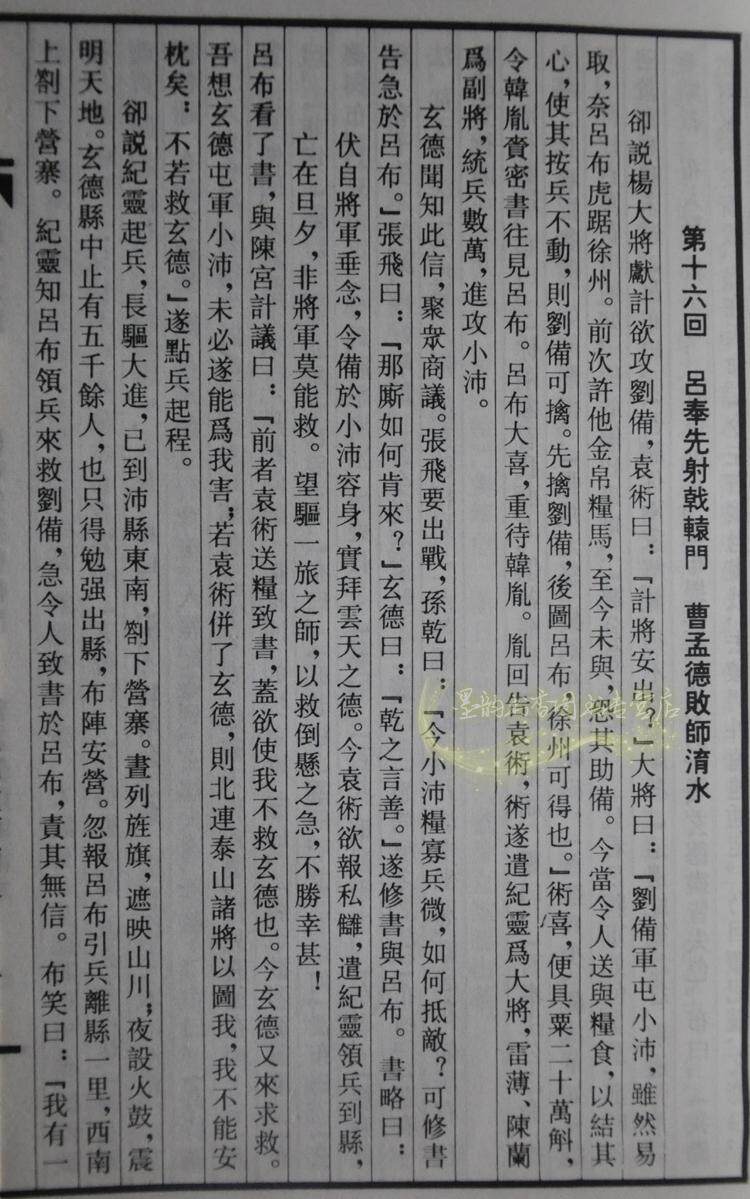 第十六回　呂奉先射戟轅門　曹孟德敗師淯水
卻說楊大將獻計欲攻劉備，袁術曰：「計將安出？」大將曰：「劉備軍屯小沛，雖然易
取，奈呂布虎踞徐州。前次許他金帛糧馬，至今未與，恐其助備。今當令人送與糧食，以結其
心，使其按兵不動，則劉備可擒。先擒劉備，後圖呂布，徐州可得也。」術喜，便具粟二十萬斛，
令韓胤賫密書往見呂布。呂布大喜，重待韓胤。胤回告袁術，術遂遣紀靈爲大將，雷薄、陳蘭
爲副將，統兵數萬，進攻小沛。
玄德聞知此信，聚衆商議。張飛要出戰，孫乾曰：「今小沛糧寡兵微，如何抵敵？可修書
告急於呂布。」張飛曰：「那廝如何肯來？」玄德曰：「乾之言善。」遂修書與呂布。書略曰：
伏自將軍垂念，令備於小沛容身，實拜雲天之德。今袁術欲報私讎，遣紀靈領兵到縣，
亡在旦夕，非將軍莫能救。望驅一旅之師，以救倒懸之急，不勝幸甚！
呂布看了書，與陳宮計議曰：「前者袁術送糧致書，蓋欲使我不救玄德也。今玄德又來求救。
吾想玄德屯軍小沛，未必遂能爲我害；若袁術併了玄德，則北連泰山諸將以圖我，我不能安
枕矣：不若救玄德。」遂點兵起程。
卻說紀靈起兵，長驅大進，已到沛縣東南，劄下營寨。晝列旌旗，遮映山川；夜設火鼓，震
明天地。玄德縣中止有五千餘人，也只得勉强出縣，布陣安營。忽報呂布引兵離縣一里，西南
上劄下營寨。紀靈知呂布領兵來救劉備，急令人致書於呂布，責其無信。布笑曰：「我有一